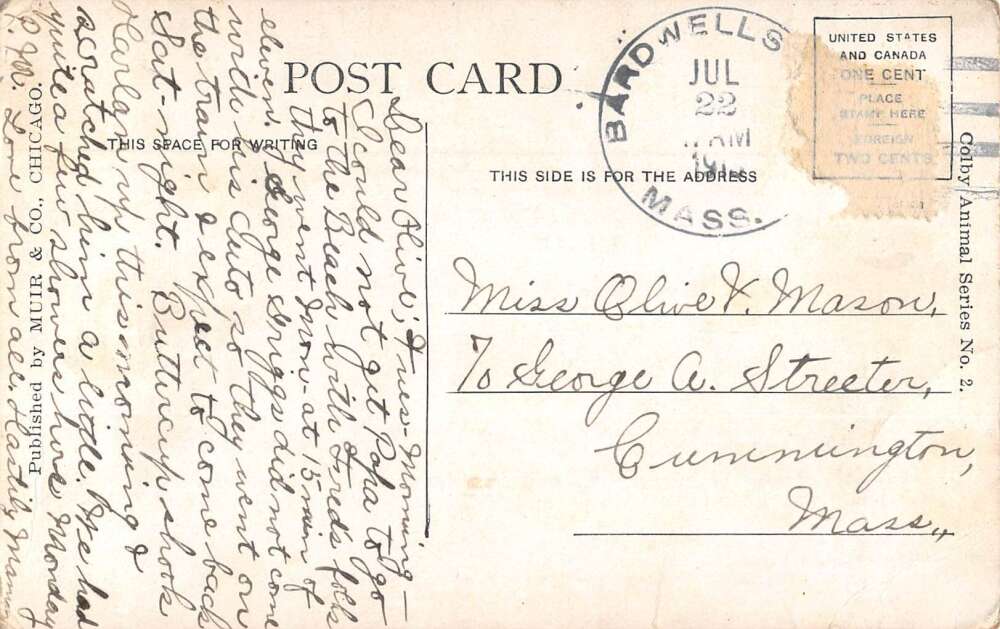 POST CARD
THIS SPACE FOR WRITING
THIS SIDE IS FOR THE ADDRESS
BARDWELLS
MASS.
JUL
22
AM
UNITED STATES
AND CANADA
ONE CENT
PLACE
STAMP HERE
FOREIGN
TWO CENTS
Colby Animal Series No. 2.
Published by MUIR & CO., CHICAGO.
Dear Olive; Tues-Morning-
I could not get Papa to go
to the Beach with Fred's folks
they went Mon- at 15 min of
eleven. George Griggs did not come
with his Auto so they went on
the train I expect to come back
Sat-night. Buttercup shook
Harlan up this morning &
scratched him a little. We had
quite a few showers here Monday
P.M. Love from all. Hastily Mama
Miss Olive V. Mason,
℅ George A. Streeter,
Cummington,
Mass,,